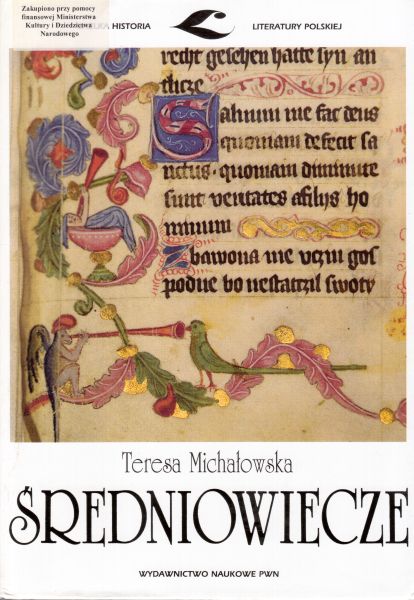 Zakupiono przy pomocy
finansowej Ministerstwa
Kultury i Dziedzictwa
Narodowego
HISTORIA LITERATURY POLSKIEJ
recht geschen hatte syn an
tlicze
Saluum me fac deus
quoniam defecit sa
nctus · quoniam diminute
sunt veritates afilys ho
minum
Zbawona me vczin gos
podne bo nestatczil swoty
Teresa Michałowska
ŚREDNIOWIECZE
WYDAWNICTWO NAUKOWE PWN